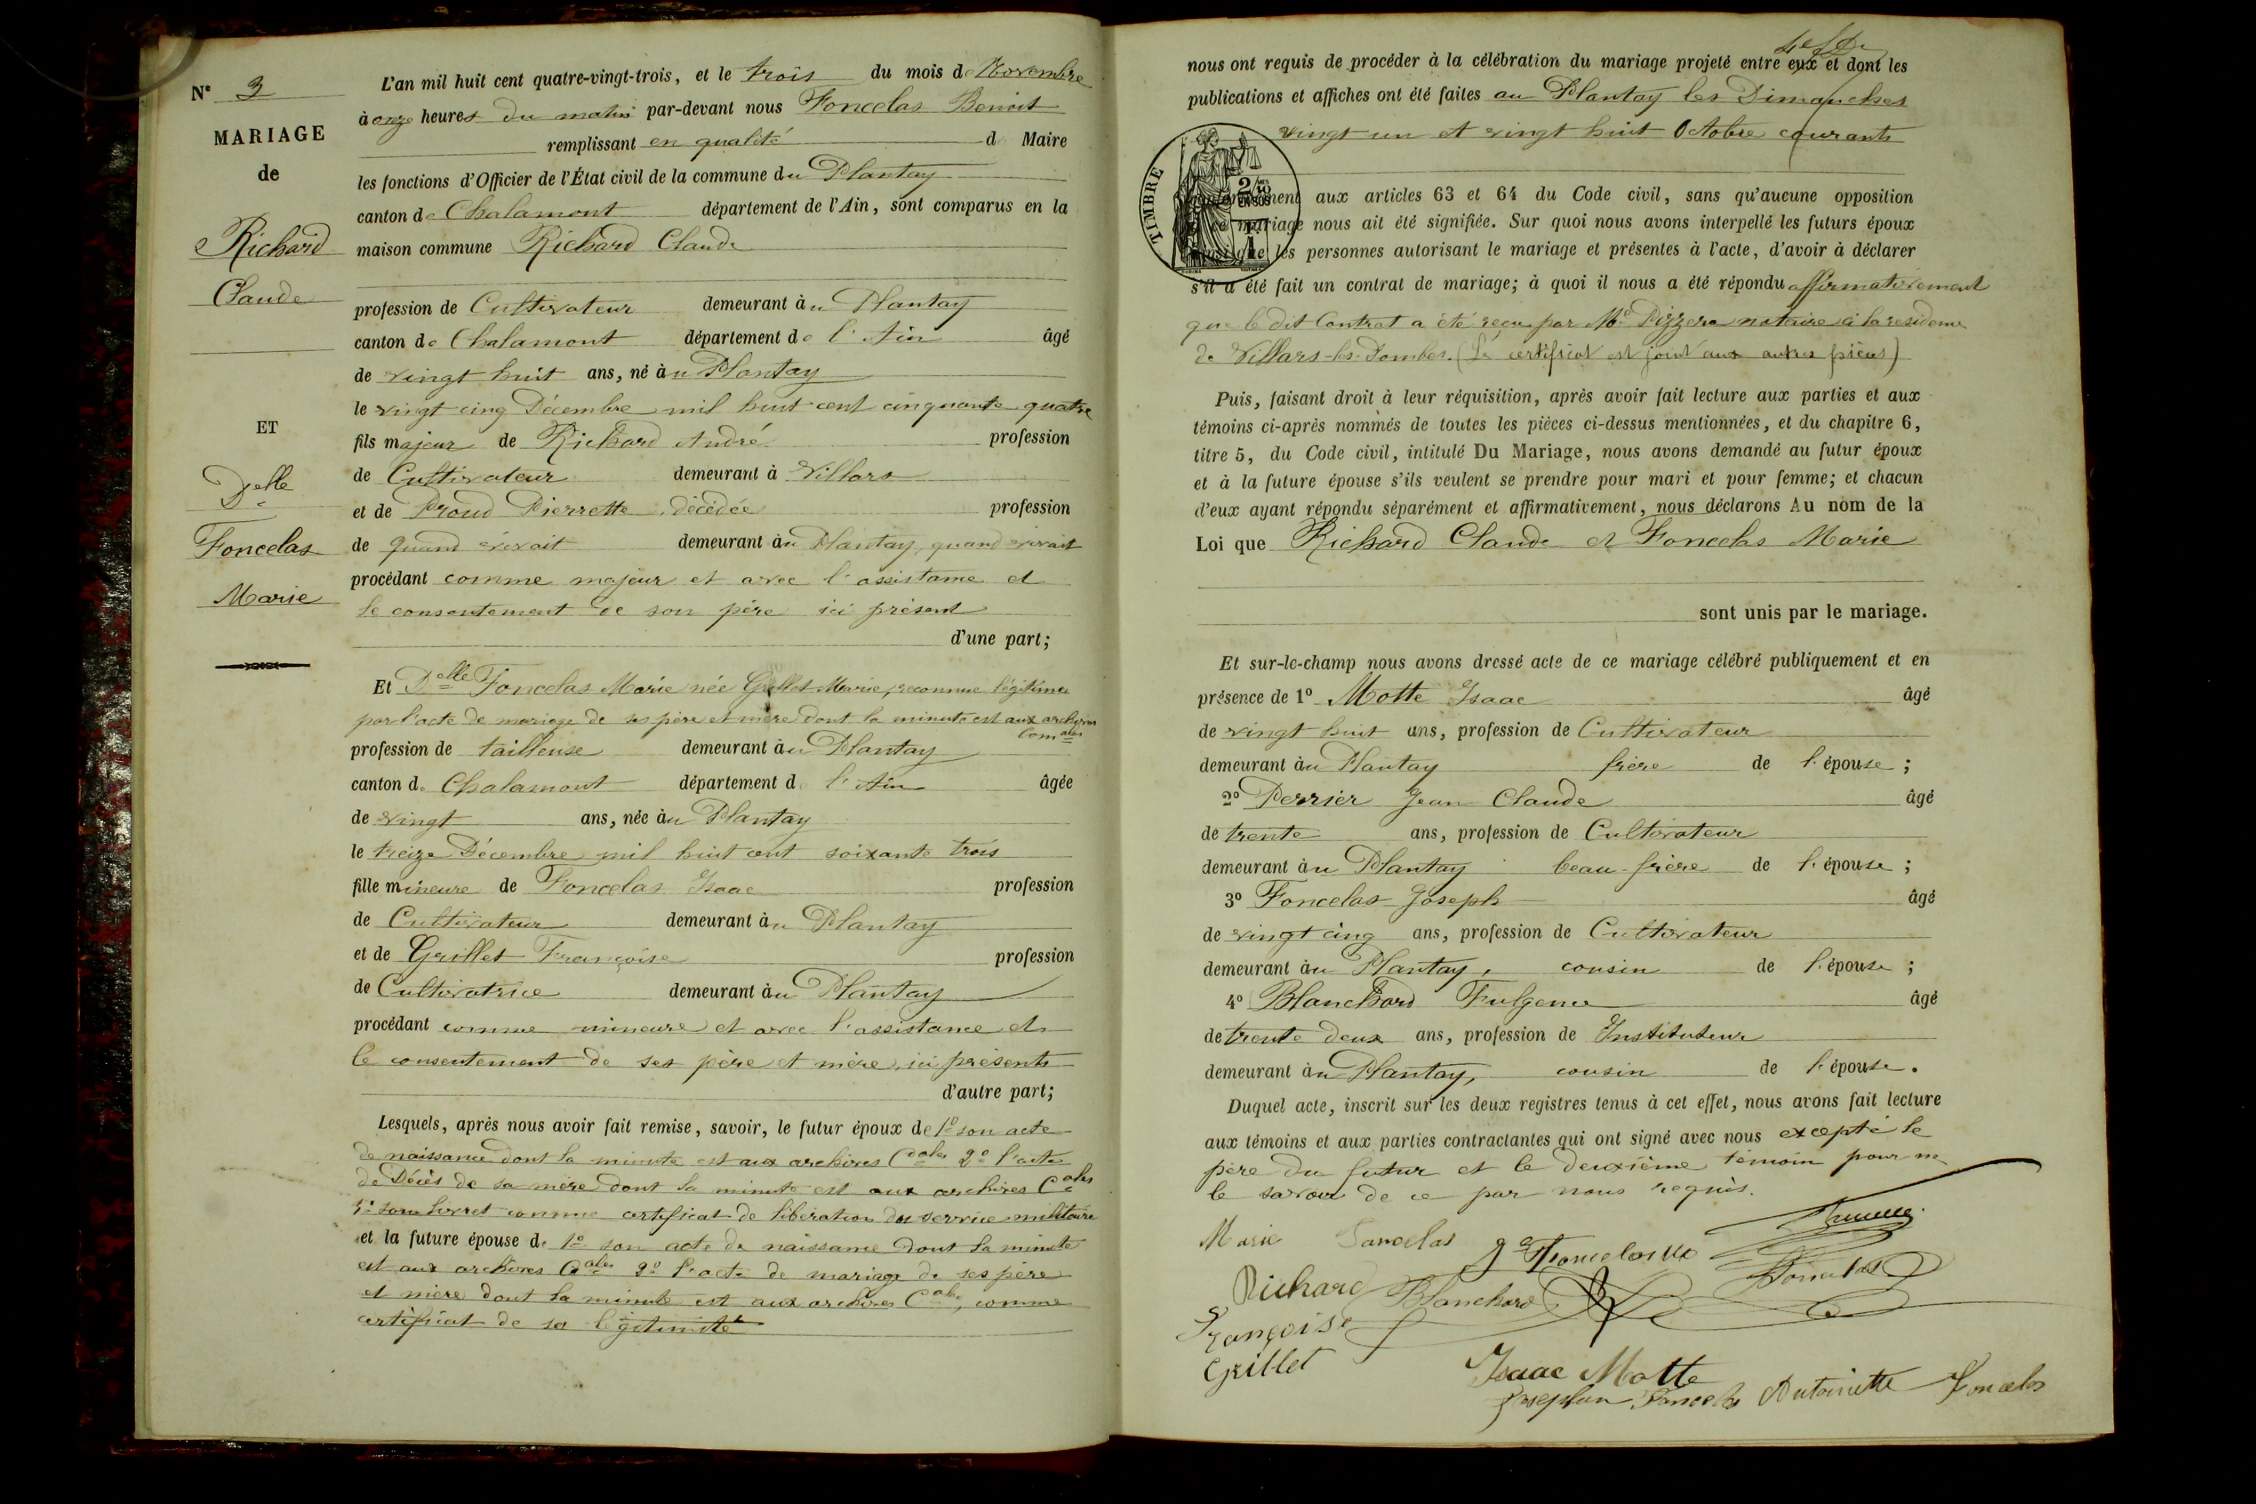 N° 3
MARIAGE
de
Richard
Claude
ET
Delle
Foncelas
Marie
L'an mil huit cent quatre-vingt-trois, et le trois du mois de Novembre
à onze heures du matin par-devant nous Foncelas Benoit
remplissant en qualité de Maire
les fonctions d'Officier de l'État civil de la commune du Plantay
canton de Chalamont département de l'Ain, sont comparus en la
maison commune Richard Claude
profession de Cultivateur demeurant àu Plantay
canton de Chalamont département de l'Ain âgé
de vingt huit ans, né àu Plantay
le vingt cinq Décembre mil huit cent cinquante quatre
fils majeur de Richard André profession
de Cultivateur demeurant à Villars
et de Proud Pierrette décédée profession
de quand vivait demeurant àu Plantay, quand vivait
procédant comme majeur et avec l'assistance et
le consentement de son père ici présent
d'une part;
Et Delle Foncelas Marie née Grillet Marie, reconnue légitime
par l'acte de mariage de ses père et mère dont la minute est aux archives
Comales
profession de tailleuse demeurant àu Plantay
canton de Chalamont département de l'Ain âgée
de vingt ans, née àu Plantay
le treize Décembre mil huit cent soixante trois
fille mineure de Foncelas Isaac profession
de Cultivateur demeurant àu Plantay
et de Grillet Françoise profession
de Cultivatrice demeurant àu Plantay
procédant comme mineure et avec l'assistance et
le consentement de ses père et mère, ici présents
d'autre part;
Lesquels, après nous avoir fait remise, savoir, le futur époux de 1° son acte
de naissance dont la minute est aux archives Cales 2° l'acte
de Décès de sa mère dont la minute est aux archives Cales
son livret comme certificat de libération du service militaire
et la future épouse de 1° son acte de naissance dont la minute
est aux archives Cales 2° l'acte de mariage de ses père
et mère dont la minute est aux archives Cales, comme
certificat de sa légitimité
nous ont requis de procéder à la célébration du mariage projeté entre eux et dont les
publications et affiches ont été faites au Plantay les Dimanches
vingt un et vingt huit Octobre courants
TIMBRE
conformément aux articles 63 et 64 du Code civil, sans qu'aucune opposition
à ce mariage nous ait été signifiée. Sur quoi nous avons interpellé les futurs époux
ainsi que les personnes autorisant le mariage et présentes à l'acte, d'avoir à déclarer
s'il a été fait un contrat de mariage; à quoi il nous a été répondu affirmativement
que le dit Contrat a été reçu par Me Pizzera notaire à la résidence
de Villars-les-Dombes. (Le certificat est joint aux autres pièces)
Puis, faisant droit à leur réquisition, après avoir fait lecture aux parties et aux
témoins ci-après nommés de toutes les pièces ci-dessus mentionnées, et du chapitre 6,
titre 5, du Code civil, intitulé Du Mariage, nous avons demandé au futur époux
et à la future épouse s'ils veulent se prendre pour mari et pour femme; et chacun
d'eux ayant répondu séparément et affirmativement, nous déclarons Au nom de la
Loi que Richard Claude et Foncelas Marie
sont unis par le mariage.
Et sur-le-champ nous avons dressé acte de ce mariage célébré publiquement et en
présence de 1° Motte Isaac âgé
de vingt huit ans, profession de Cultivateur
demeurant àu Plantay frère de l'épouse;
2° Perrier Jean Claude âgé
de trente ans, profession de Cultivateur
demeurant àu Plantay beau-frère de l'épouse;
3° Foncelas Joseph âgé
de vingt cinq ans, profession de Cultivateur
demeurant àu Plantay, cousin de l'épouse;
4° Blanchard Fulgence âgé
de trente deux ans, profession de Instituteur
demeurant àu Plantay, cousin de l'épouse.
Duquel acte, inscrit sur les deux registres tenus à cet effet, nous avons fait lecture
aux témoins et aux parties contractantes qui ont signé avec nous excepté le
père du futur et le deuxième témoin pour ne
le savoir de ce par nous requis.
Marie Foncelas
Richard Blanchard Foncelas
Françoise
Grillet
Isaac Motte
Foncelas Antoinette Foncelas